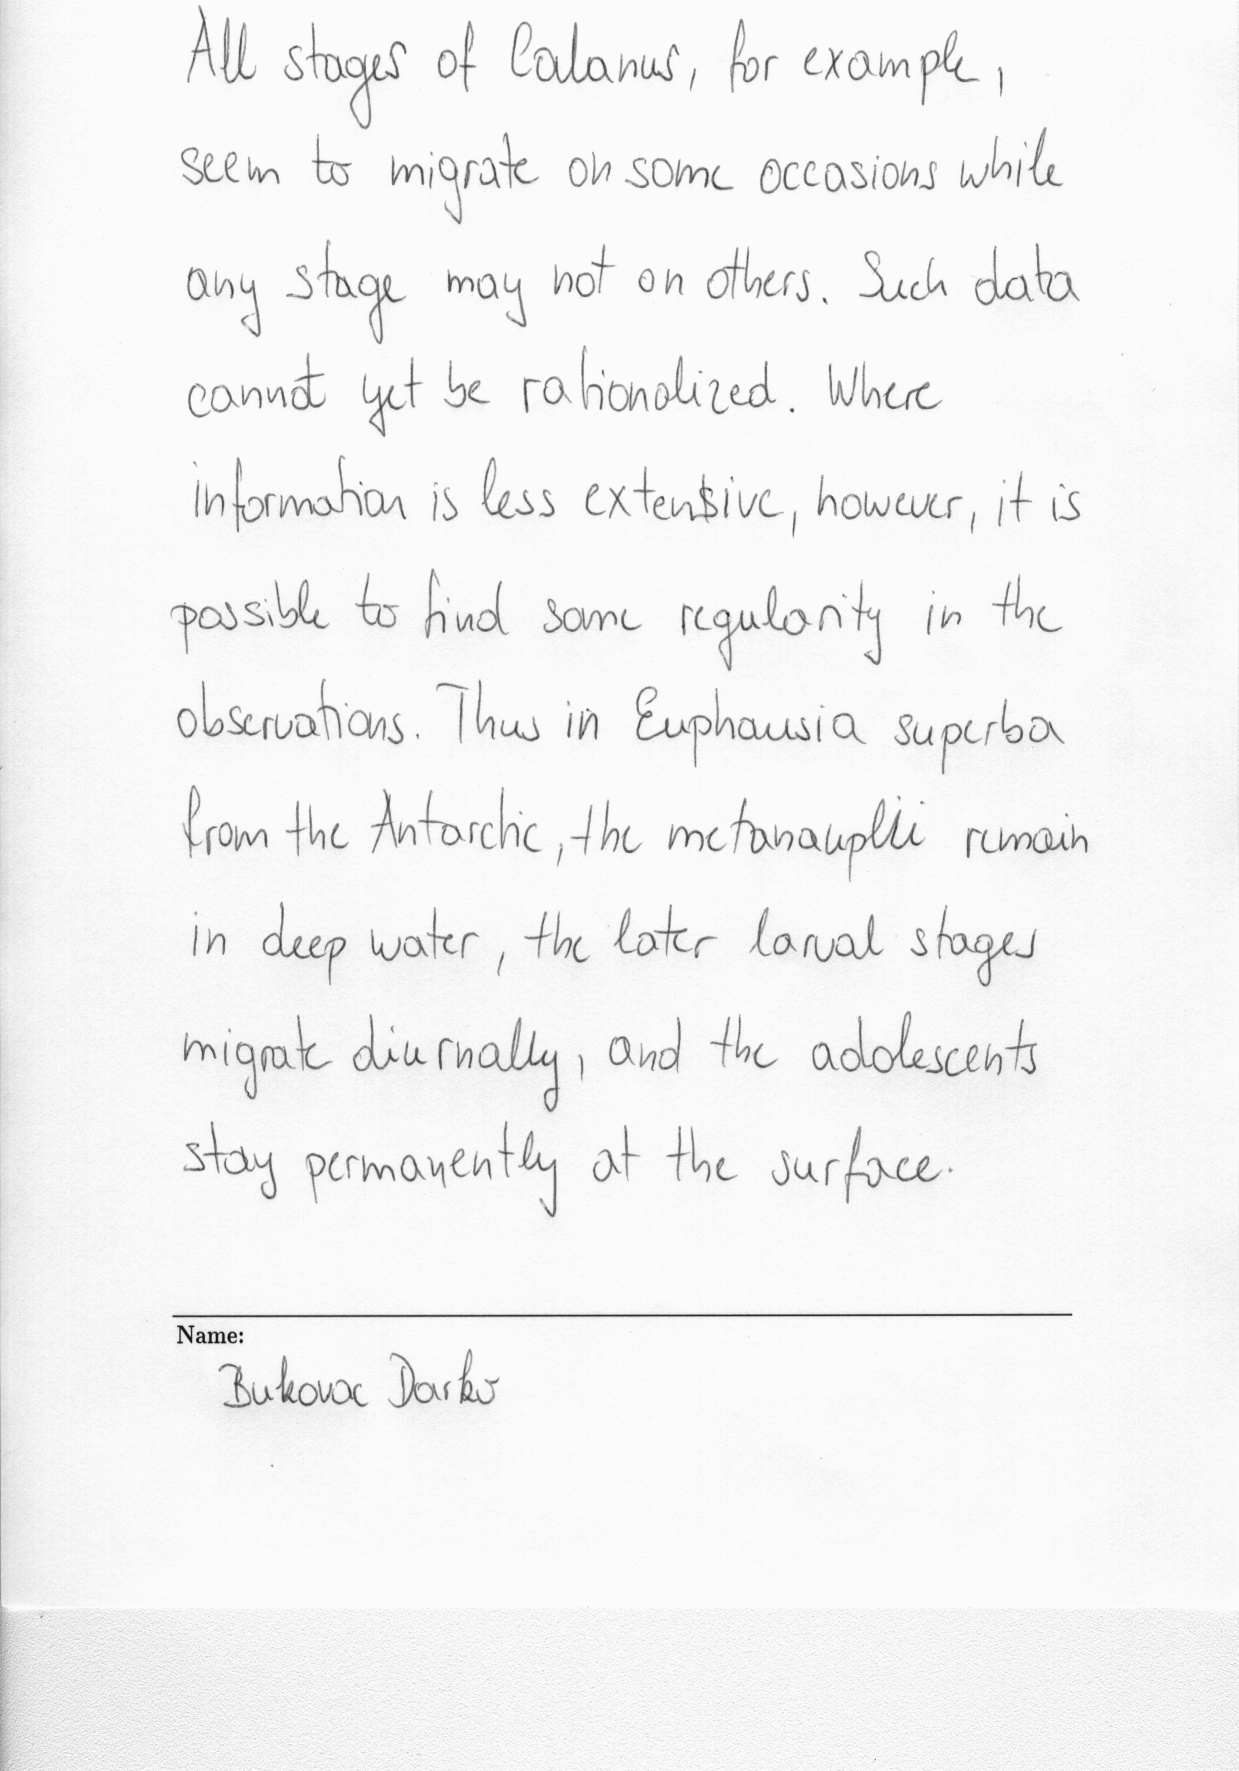 All stages of Calanus, for example,
seem to migrate on some occasions while
any stage may not on others. Such data
cannot yet be rationalized. Where
information is less extensive, however, it is
possible to find some regularity in the
observations. Thus in Euphausia superba
from the Antarctic, the metanauplii remain
in deep water, the later larval stages
migrate diurnally, and the adolescents
stay permanently at the surface.
Name:
Bukovac Darko